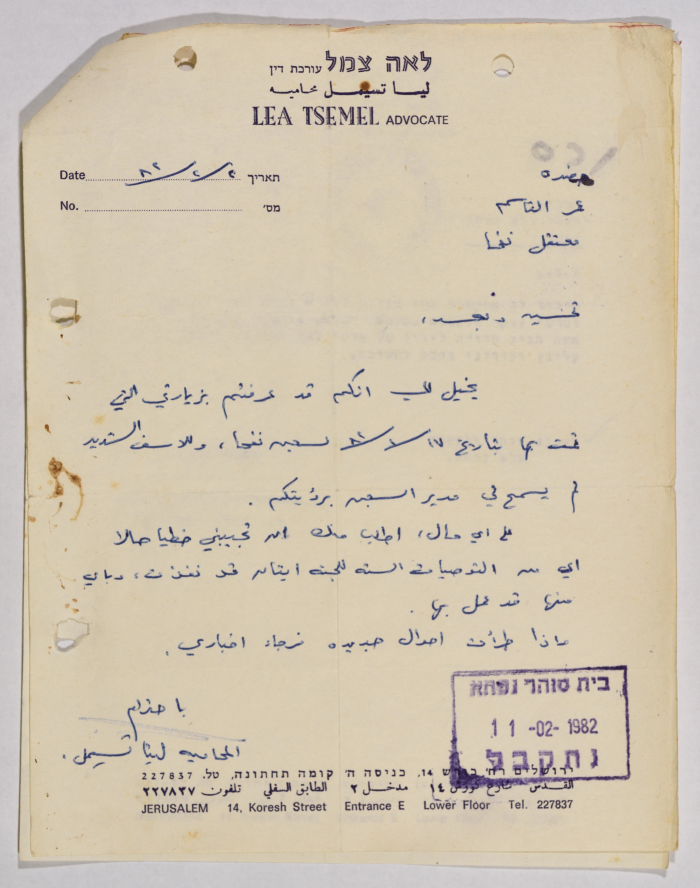 לאה צמל עורכת דין
ليئا تسيمل محاميه
LEA TSEMEL ADVOCATE
Date ٨٢/٢/٢ תאריך
No. מס'
حضرة
عمر القاسم
معتقل نفحا
تحيه وبعد،
يخيل لي انكم قد عرفتم بزيارتي التي
قمت بها بتاريخ ١٧/١/٨٢ لسجن نفحا، وللاسف الشديد
لم يسمح لي مدير السجن برؤيتكم.
على اي حال، اطلب منك ان تجيبني خطيا حالا
اي من التوصيات السته للجنة ايتان قد نفذت، وباي
منها قد عمل بها.
واذا طرأت احوال جديده نرجاء اخباري.
باحترام
المحاميه ليئا تسيمل.
בית סוהר נפחא
11-02-1982
נתקבל
ירושלים רח' כורש 14, כניסה ה' קומה תחתונה, טל. 227837
القدس شارع كورش ١٤ مدخل ٢ الطابق السفلي تلفون ٢٢٧٨٣٧
JERUSALEM 14, Koresh Street Entrance E Lower Floor Tel. 227837